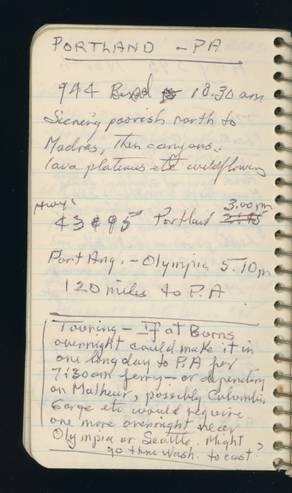 PORTLAND - PA
944 Bend 10.30 am
Scenery poorish north to
Madras, then canyons.
lava plateaus etc wildflowers
Hwys
43 & 95 Portland 3.00pm
Port Ang. - Olympia 5.10pm
120 miles to P.A
Touring - If at Burns
overnight could make it in
one long day to P.A for
7:30am ferry - or depending
on Malheur, possibly Columbia
Gorge etc would require
one more overnight near
Olympia or Seattle. Might
go thru Wash. to east